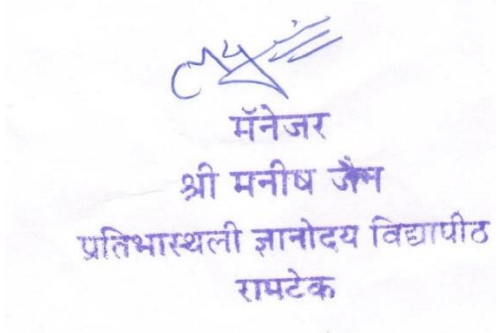 मॅनेजर
श्री मनीष जैन
प्रतिभास्थली ज्ञानोदय विद्यापीठ
रामटेक